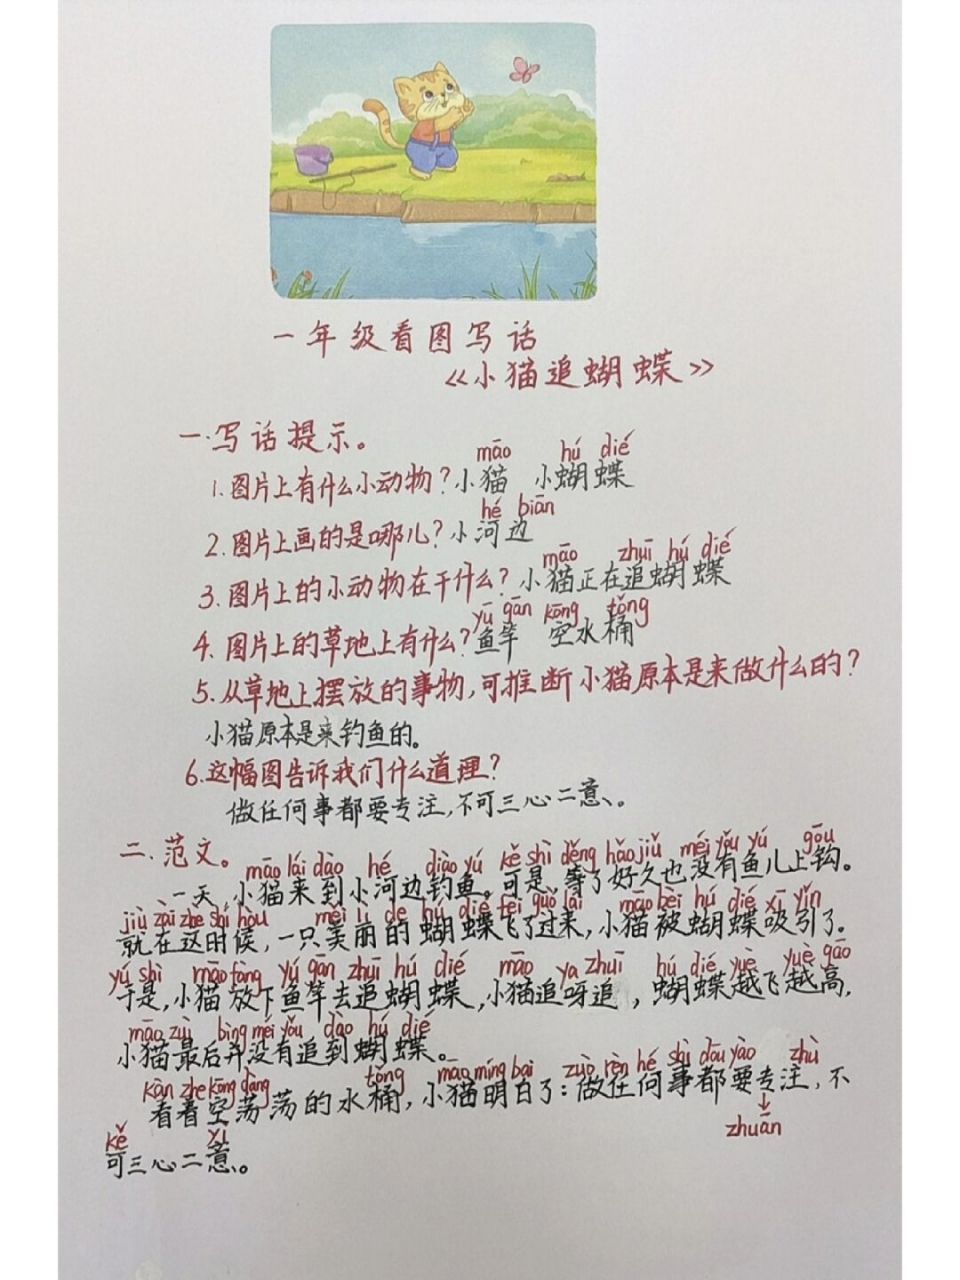 一年级看图写话
《小猫追蝴蝶》
一.写话提示。
māo hú dié
1.图片上有什么小动物?小猫 小蝴蝶
hé biān
2.图片上画的是哪儿?小河边
māo zhuī hú dié
3.图片上的小动物在干什么?小猫正在追蝴蝶
yú gān kōng tǒng
4.图片上的草地上有什么?鱼竿 空水桶
5.从草地上摆放的事物,可推断小猫原本是来做什么的?
小猫原本是来钓鱼的。
6.这幅图告诉我们什么道理?
做任何事都要专注,不可三心二意、。
二.范文。
māo lái dào hé diào yú kě shì děng hǎo jiǔ méi yǒu yú gōu
一天,小猫来到小河边钓鱼。可是,等了好久也没有鱼儿上钩。
jiù zài zhe shí hou měi lì de hú dié fēi guò lái māo bèi hú dié xī yǐn
就在这时候,一只美丽的蝴蝶飞了过来,小猫被蝴蝶吸引了。
yú shì māo fàng yú gān zhuī hú dié māo ya zhuī hú dié yuè yuè gāo
于是,小猫放下鱼竿去追蝴蝶,小猫追呀追,蝴蝶越飞越高,
māo zuì bìng méi yǒu dào hú dié
小猫最后并没有追到蝴蝶。
kàn zhe kōng dàng tǒng māo míng bai zuò rèn hé shì dōu yào zhù
看着空荡荡的水桶,小猫明白了:做任何事都要专注,不
zhuān
kě yì
可三心二意、。